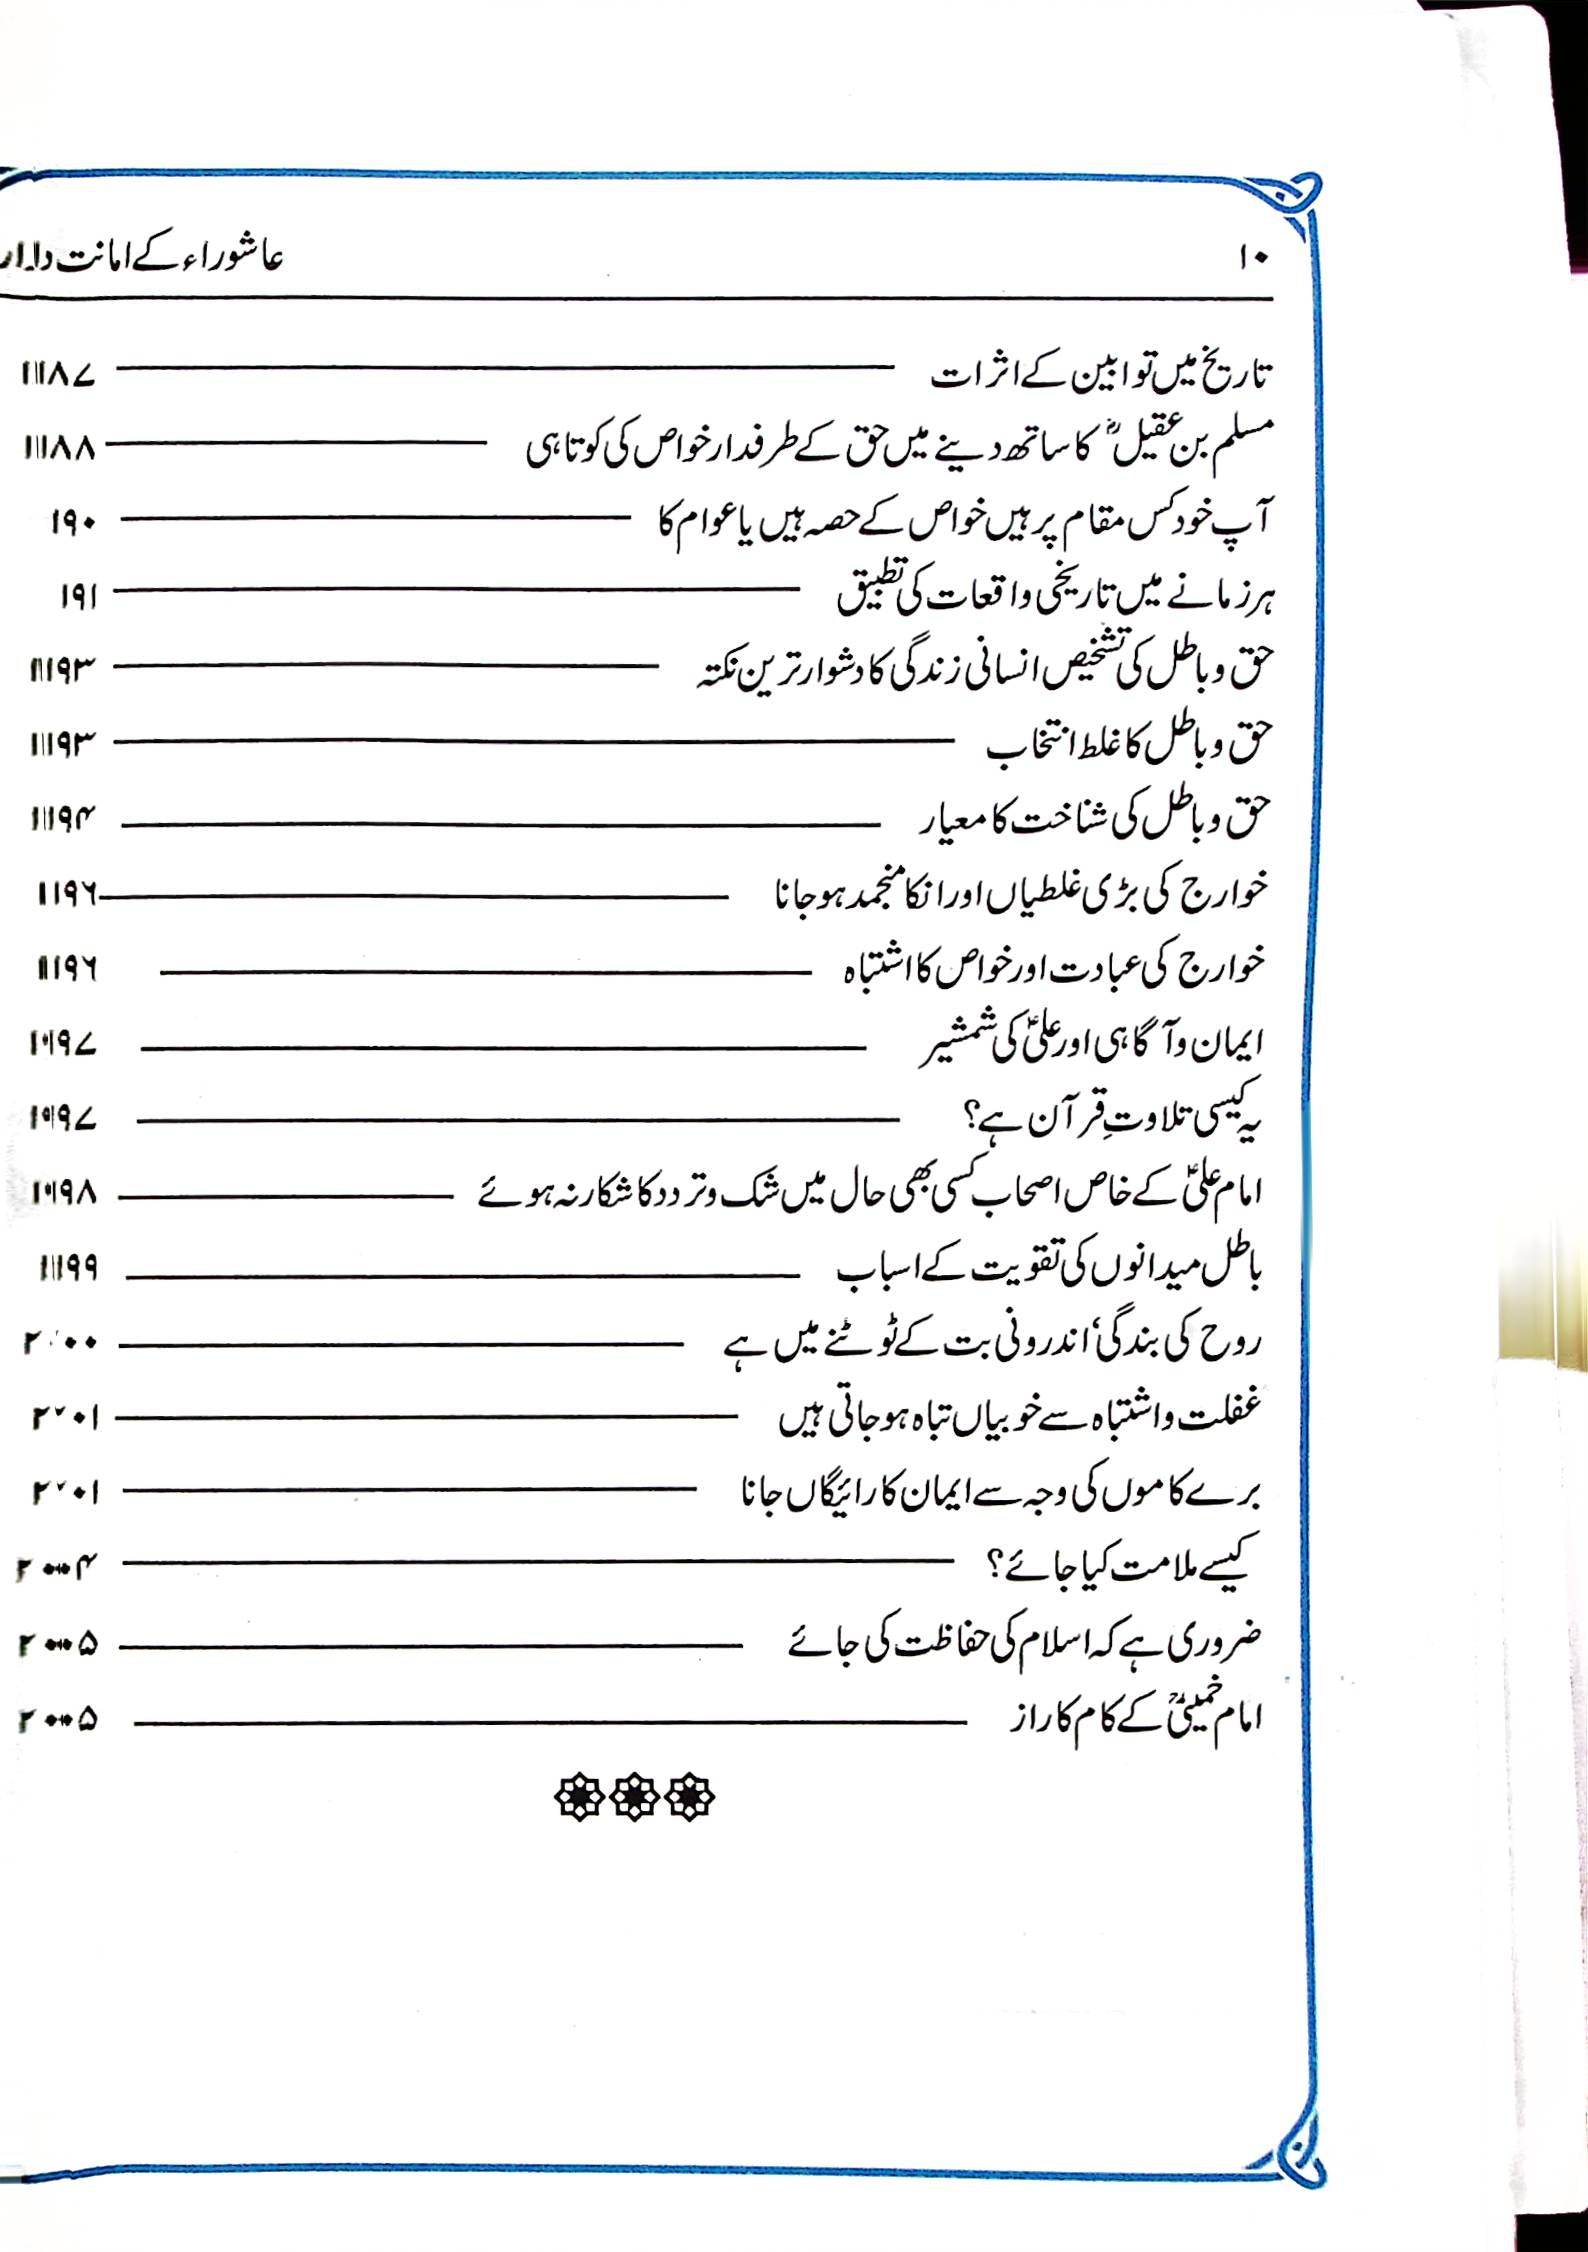 ۱۰ عاشوراء کے امانت دار
تاریخ میں توابین کے اثرات ۱۸۷
مسلم بن عقیلؓ کا ساتھ دینے میں حق کے طرفدار خواص کی کوتاہی ۱۸۸
آپ خود کس مقام پر ہیں خواص کے حصہ ہیں یا عوام کا ۱۹۰
ہر زمانے میں تاریخی واقعات کی تطبیق ۱۹۱
حق و باطل کی تشخیص انسانی زندگی کا دشوار ترین نکتہ ۱۹۳
حق و باطل کا غلط انتخاب ۱۹۳
حق و باطل کی شناخت کا معیار ۱۹۴
خوارج کی بڑی غلطیاں اور انکا منجمد ہو جانا ۱۹۶
خوارج کی عبادت اور خواص کا اشتباہ ۱۹۶
ایمان و آگاہی اور علیؑ کی شمشیر ۱۹۷
یہ کیسی تلاوتِ قرآن ہے؟ ۱۹۷
امام علیؑ کے خاص اصحاب کسی بھی حال میں شک و تردد کا شکار نہ ہوئے ۱۹۸
باطل میدانوں کی تقویت کے اسباب ۱۹۹
روح کی بندگی‘ اندرونی بت کے ٹوٹنے میں ہے ۲۰۰
غفلت و اشتباہ سے خوبیاں تباہ ہو جاتی ہیں ۲۰۱
برے کاموں کی وجہ سے ایمان کا رائیگاں جانا ۲۰۱
کیسے ملامت کیا جائے؟ ۲۰۴
ضروری ہے کہ اسلام کی حفاظت کی جائے ۲۰۵
امام خمینیؒ کے کام کا راز ۲۰۵